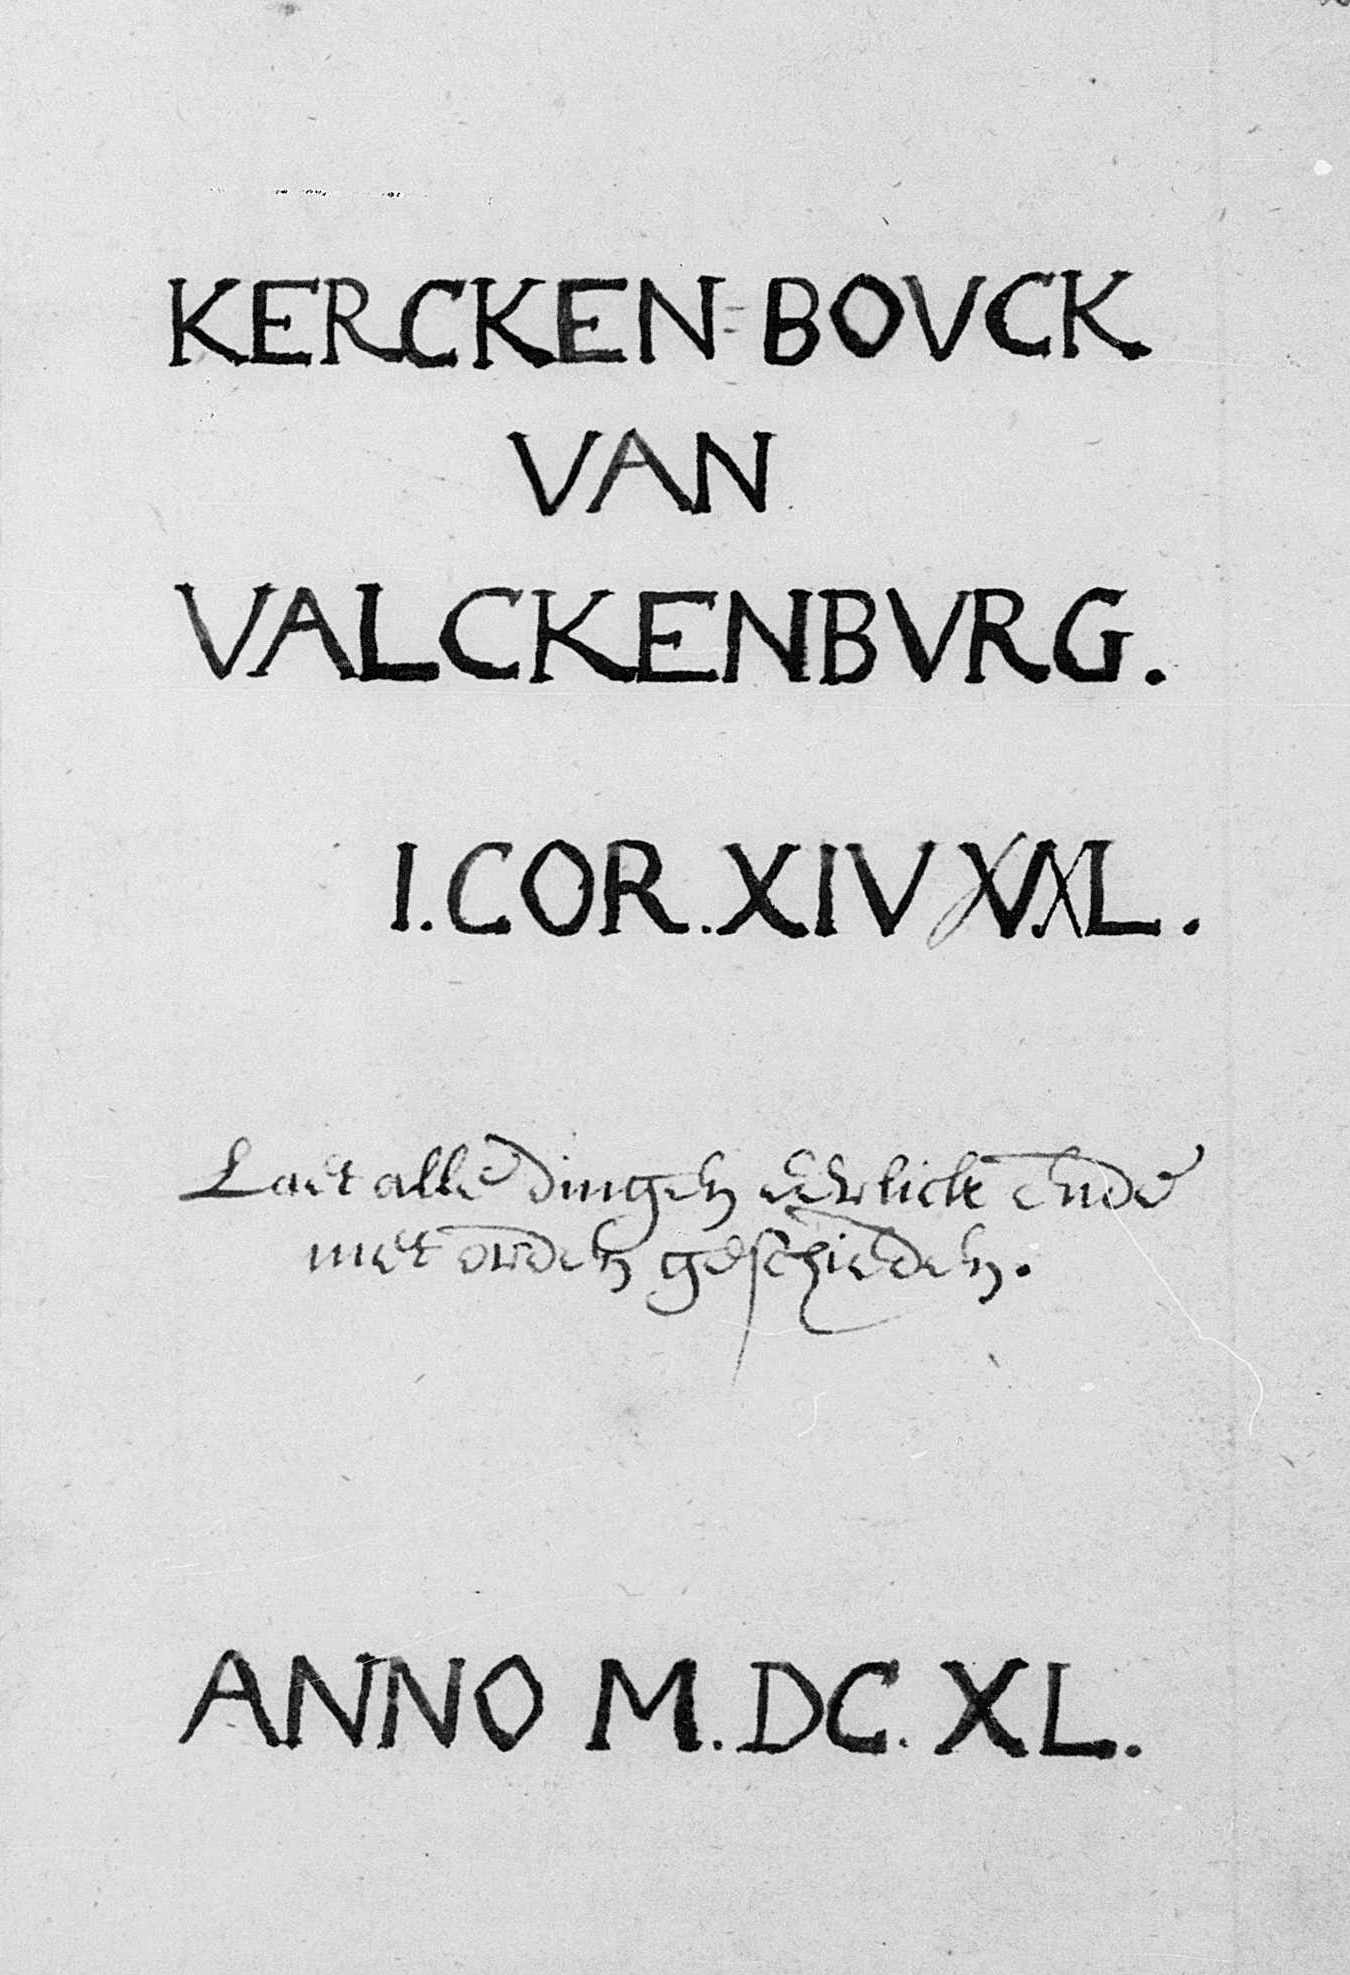 KERCKEN=BOVCK
VAN
VALCKENBVRG.
I.COR.XIV XL.
Laet alle dingen eerlick ende
met orden geschieden.
ANNO M.DC.XL.